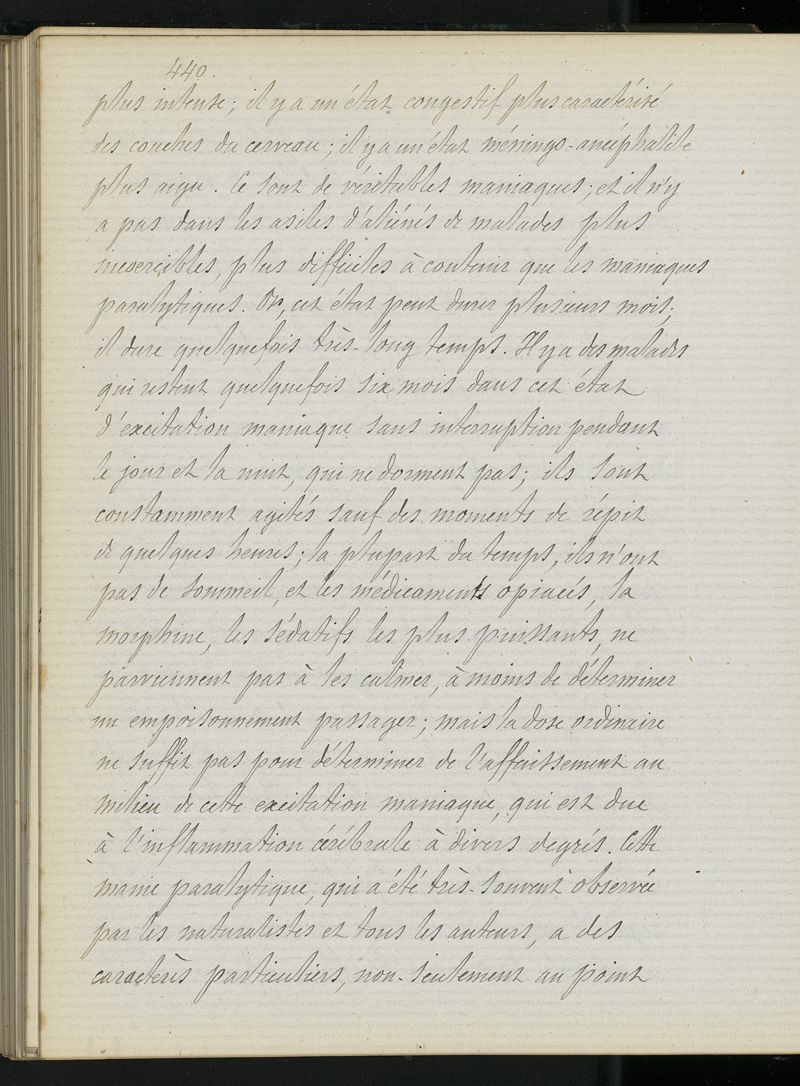 440.
plus intense; il y a un état congestif plus caractérisé
des couches du cerveau; il y a un état méningo-encéphalite
plus aigu. Ce sont de véritables maniaques; et il n'y
a pas dans les asiles d'aliénés de malades plus
incoercibles, plus difficiles à contenir que les maniaques
paralytiques. Or, cet état peut durer plusieurs mois;
il dure quelquefois très-long temps. Il y a des malades
qui restent quelquefois six mois dans cet état
d'excitation maniaque sans interruption pendant
le jour et la nuit, qui ne dorment pas; ils sont
constamment agités sauf des moments de répit
de quelques heures; la plupart du temps, ils n'ont
pas de sommeil, et les médicaments opiacés, la
morphine, les sédatifs les plus puissants, ne
parviennent pas à les calmer, à moins de déterminer
un empoisonnement passager; mais la dose ordinaire
ne suffit pas pour déterminer de l'affaissement au
milieu de cette excitation maniaque, qui est due
à l'inflammation cérébrale à divers degrés. Cette
manie paralytique, qui a été très-souvent observée
par les naturalistes et tous les auteurs, a des
caractères particuliers, non-seulement au point